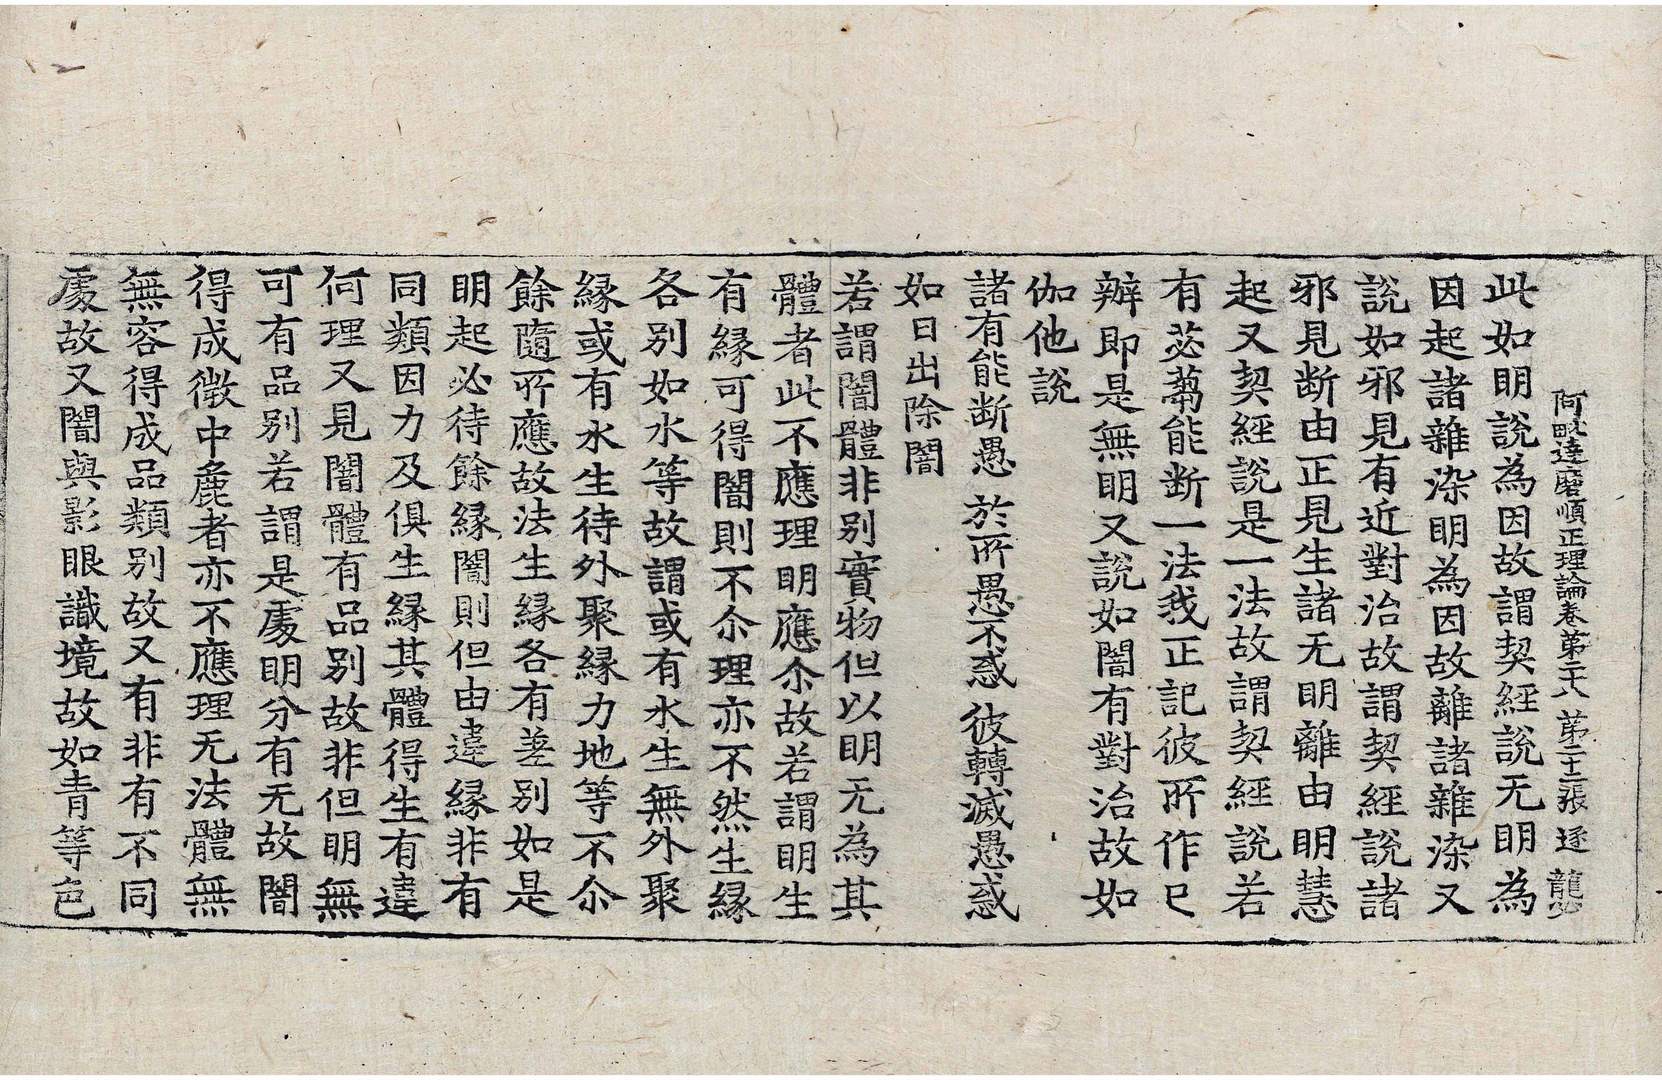 阿毗達磨順正理論卷第二十八 第二十二張 逐 龍
此如明說為因故謂契經說无明為
因起諸雜染明為因故離諸雜染又
說如邪見有近對治故謂契經說諸
邪見斷由正見生諸无明離由明慧
起又契經說是一法故謂契經說若
有苾蒭能斷一法我正記彼所作已
辦即是無明又說如闇有對治故如
伽他說
諸有能斷愚 於所愚不惑 彼轉滅愚惑
如日出除闇
若謂闇體非別實物但以明无為其
體者此不應理明應尒故若謂明生
有緣可得闇則不尒理亦不然生緣
各別如水等故謂或有水生無外聚
緣或有水生待外聚緣力地等不尒
餘隨所應故法生緣各有差別如是
明起必待餘緣闇則但由違緣非有
同類因力及俱生緣其體得生有違
何理又見闇體有品別故非但明無
可有品別若謂是處明分有无故闇
得成微中麁者亦不應理无法體無
無容得成品類別故又有非有不同
處故又闇與影眼識境故如青等色